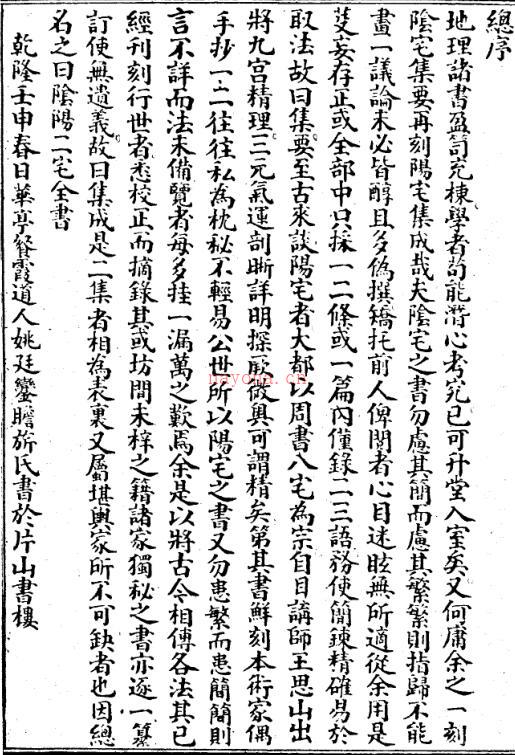 總序
地理諸書盈笥充棟學者苟能潛心考究已可升堂入室矣又何庸余之一刻
陰宅集要再刻陽宅集成哉夫陰宅之書勿慮其簡而慮其繁繁則指歸不能
畫一議論未必皆醇且多偽撰矯托前人俾閱者心目迷眩無所適從余用是
芟妄存正或全部中只採一二條或一篇內僅錄二三語務使簡鍊精確易於
取法故曰集要至古來談陽宅者大都以周書八宅為宗自目講師王思山出
將九宮精理三元氣運剖晰詳明探厥微奧可謂精矣第其書鮮刻本術家偶
手抄一二往往私為枕秘不輕易公世所以陽宅之書又勿患繁而患簡簡則
言不詳而法未備覽者每多挂一漏萬之歎焉余是以將古今相傳各法其已
經刊刻行世者悉校正而摘錄其或坊間未梓之籍諸家獨秘之書亦逐一纂
訂使無遺義故曰集成是二集者相為表裏又屬堪輿家所不可缺者也因總
名之曰陰陽二宅全書
乾隆壬申春日華亭餐霞道人姚廷鑾瞻旂氏書於片山書樓
nayona.cn